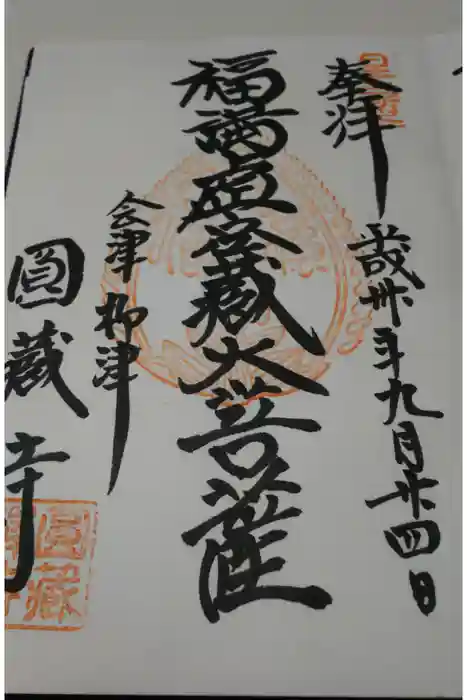 奉拝
平成卅年九月廿四日
福満虚空蔵大菩薩
会津 柳津
圓蔵寺
圓藏